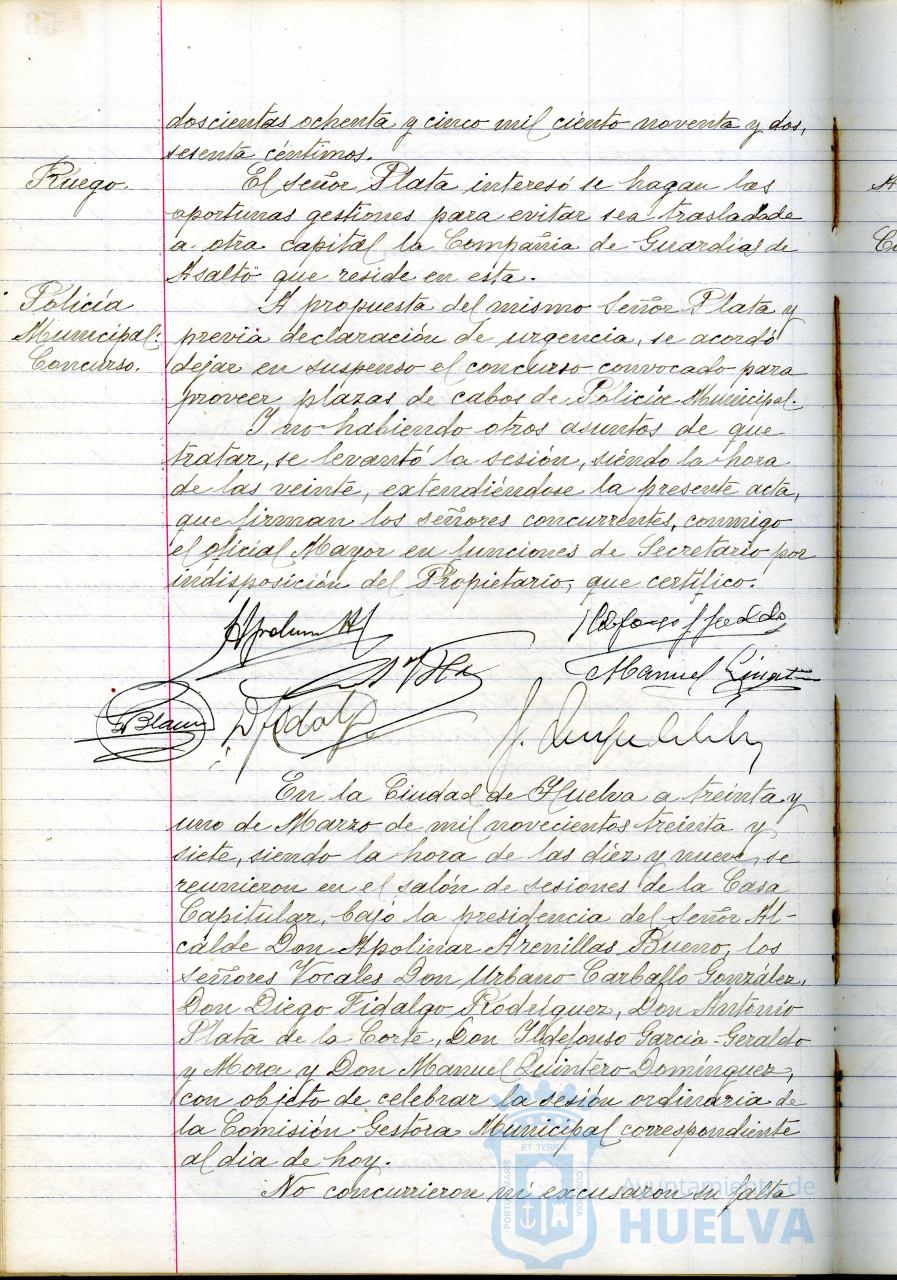 doscientas ochenta y cinco mil ciento noventa y dos,
sesenta céntimos.
Ruego.
El señor Plata interesó se hagan las
oportunas gestiones para evitar sea trasladada
a otra capital la Compañia de Guardias de
Asalto que reside en esta.
Policía
Municipal:
Concurso.
A propuesta del mismo Señor Plata y
previa declaración de urgencia, se acordó
dejar en suspenso el concurso convocado para
proveer plazas de cabos de Policia Municipal.
Y no habiendo otros asuntos de que
tratar, se levantó la sesión, siendo la hora
de las veinte, extendiéndose la presente acta,
que firman los señores concurrentes, conmigo
el oficial Mayor en funciones de Secretario por
indisposición del Propietario, que certifico.
Manuel
Blanco
D Fidalgo
En la Ciudad de Huelva a treinta y
uno de Marzo de mil novecientos treinta y
siete, siendo la hora de las diez y nueve, se
reunieron en el salón de sesiones de la Casa
Capitular, bajo la presidencia del Señor Al-
calde Don Apolinar Arenillas Bueno, los
señores Vocales Don Urbano Carballo González,
Don Diego Fidalgo Rodríguez, Don Antonio
Plata de la Corte, Don Ildefonso García-Geraldo
y Mora y Don Manuel Quintero Domínguez,
con objeto de celebrar la sesión ordinaria de
la Comisión Gestora Municipal correspondiente
al dia de hoy.
No concurrieron ni excusaron su falta
Ayuntamiento de
HUELVA